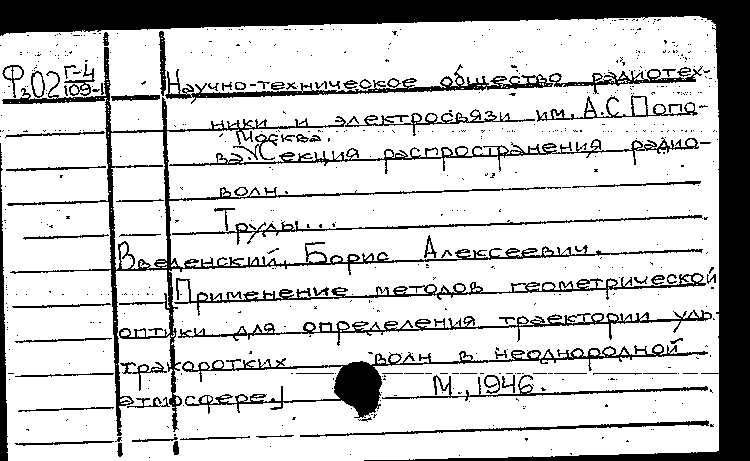 Ф₂02 Г-4/109-1 Научно-техническое общество радиотех-
ники и электросвязи им. А.С. Попо-
Москва.
ва. √ Секция распространения радио-
волн.
Труды...
Введенский, Борис Алексеевич.
[Применение методов геометрической
оптики для определения траектории уль-
тракоротких волн в неоднородной
атмосфере.] М., 1946.